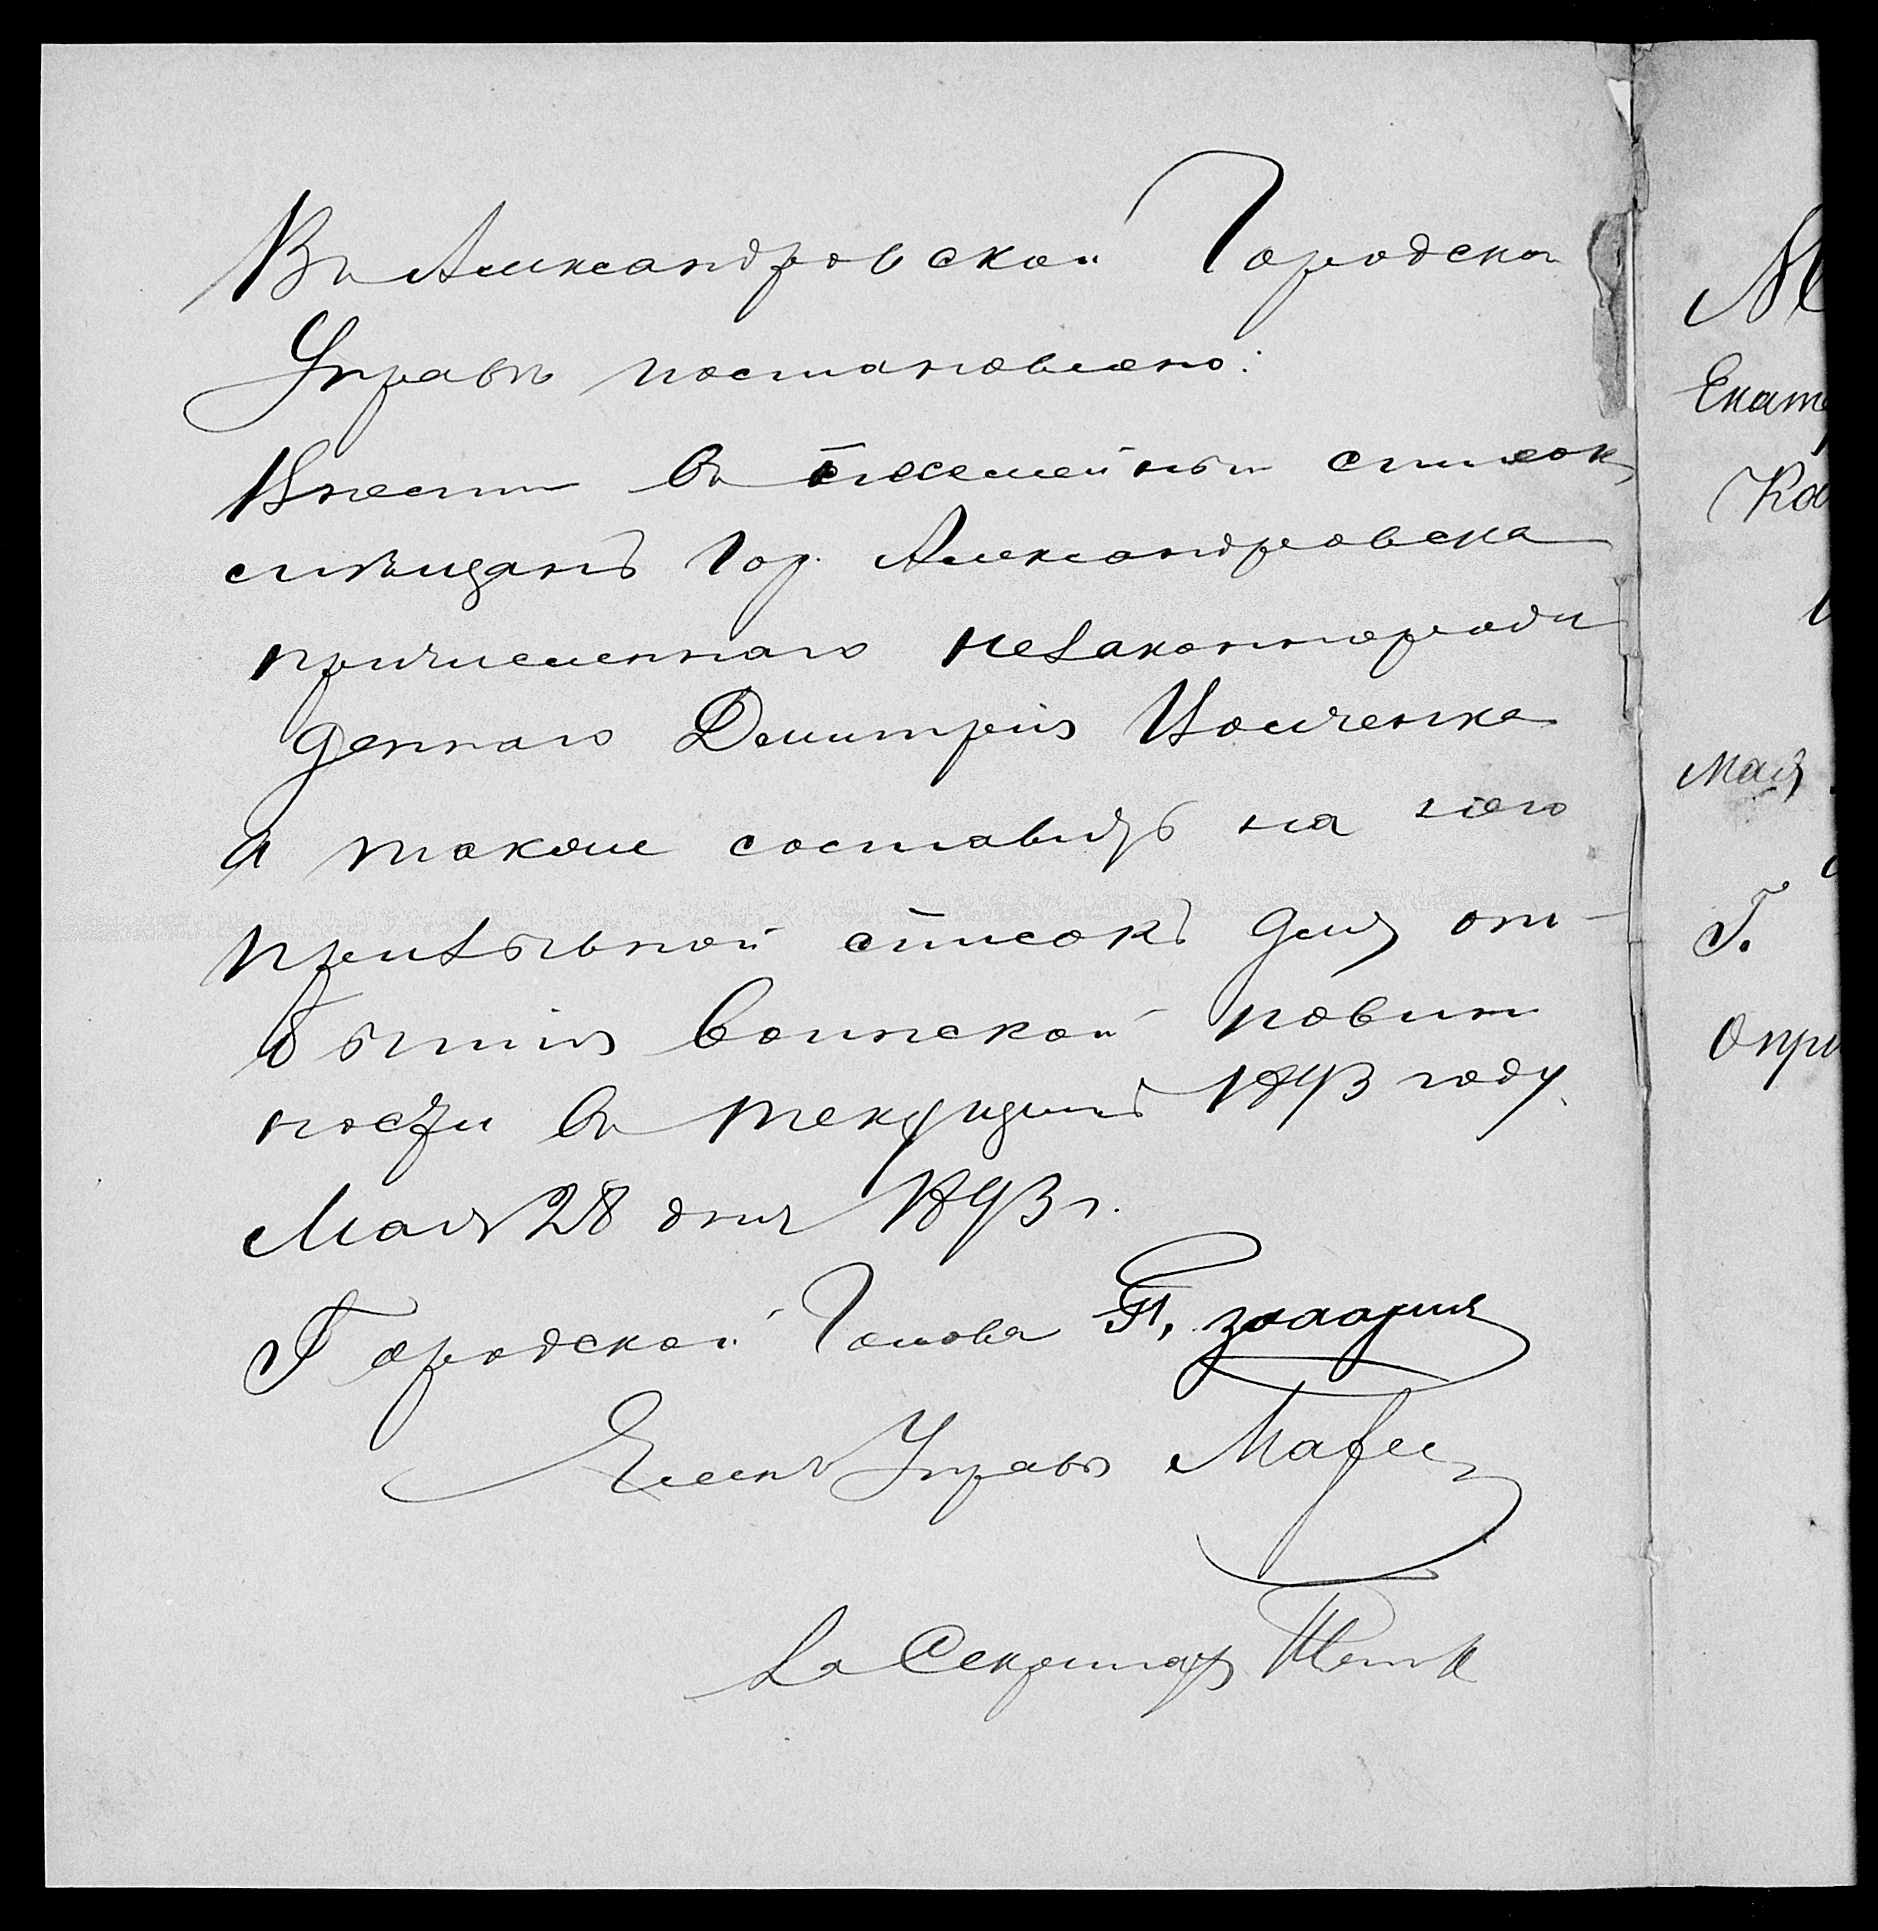 Въ Александровской Городской
Управѣ постановлено:
Внести въ посемейный список
мѣщанъ гор. Александровска
причисленнаго незаконнорож
деннаго Дмитрія
а также составить на него
призывной списокъ для от-
бытія воинской повин
ности въ текущемъ 1893 году.
Мая 28 дня 1893 г.
Городской Голова
Членъ Управы
За Секретаря
Екате
Мая
Г.
Опре